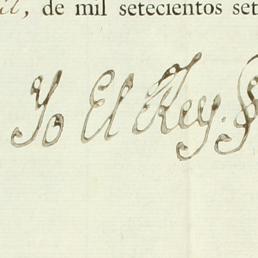 de mil setecientos set
Yo El Rey.